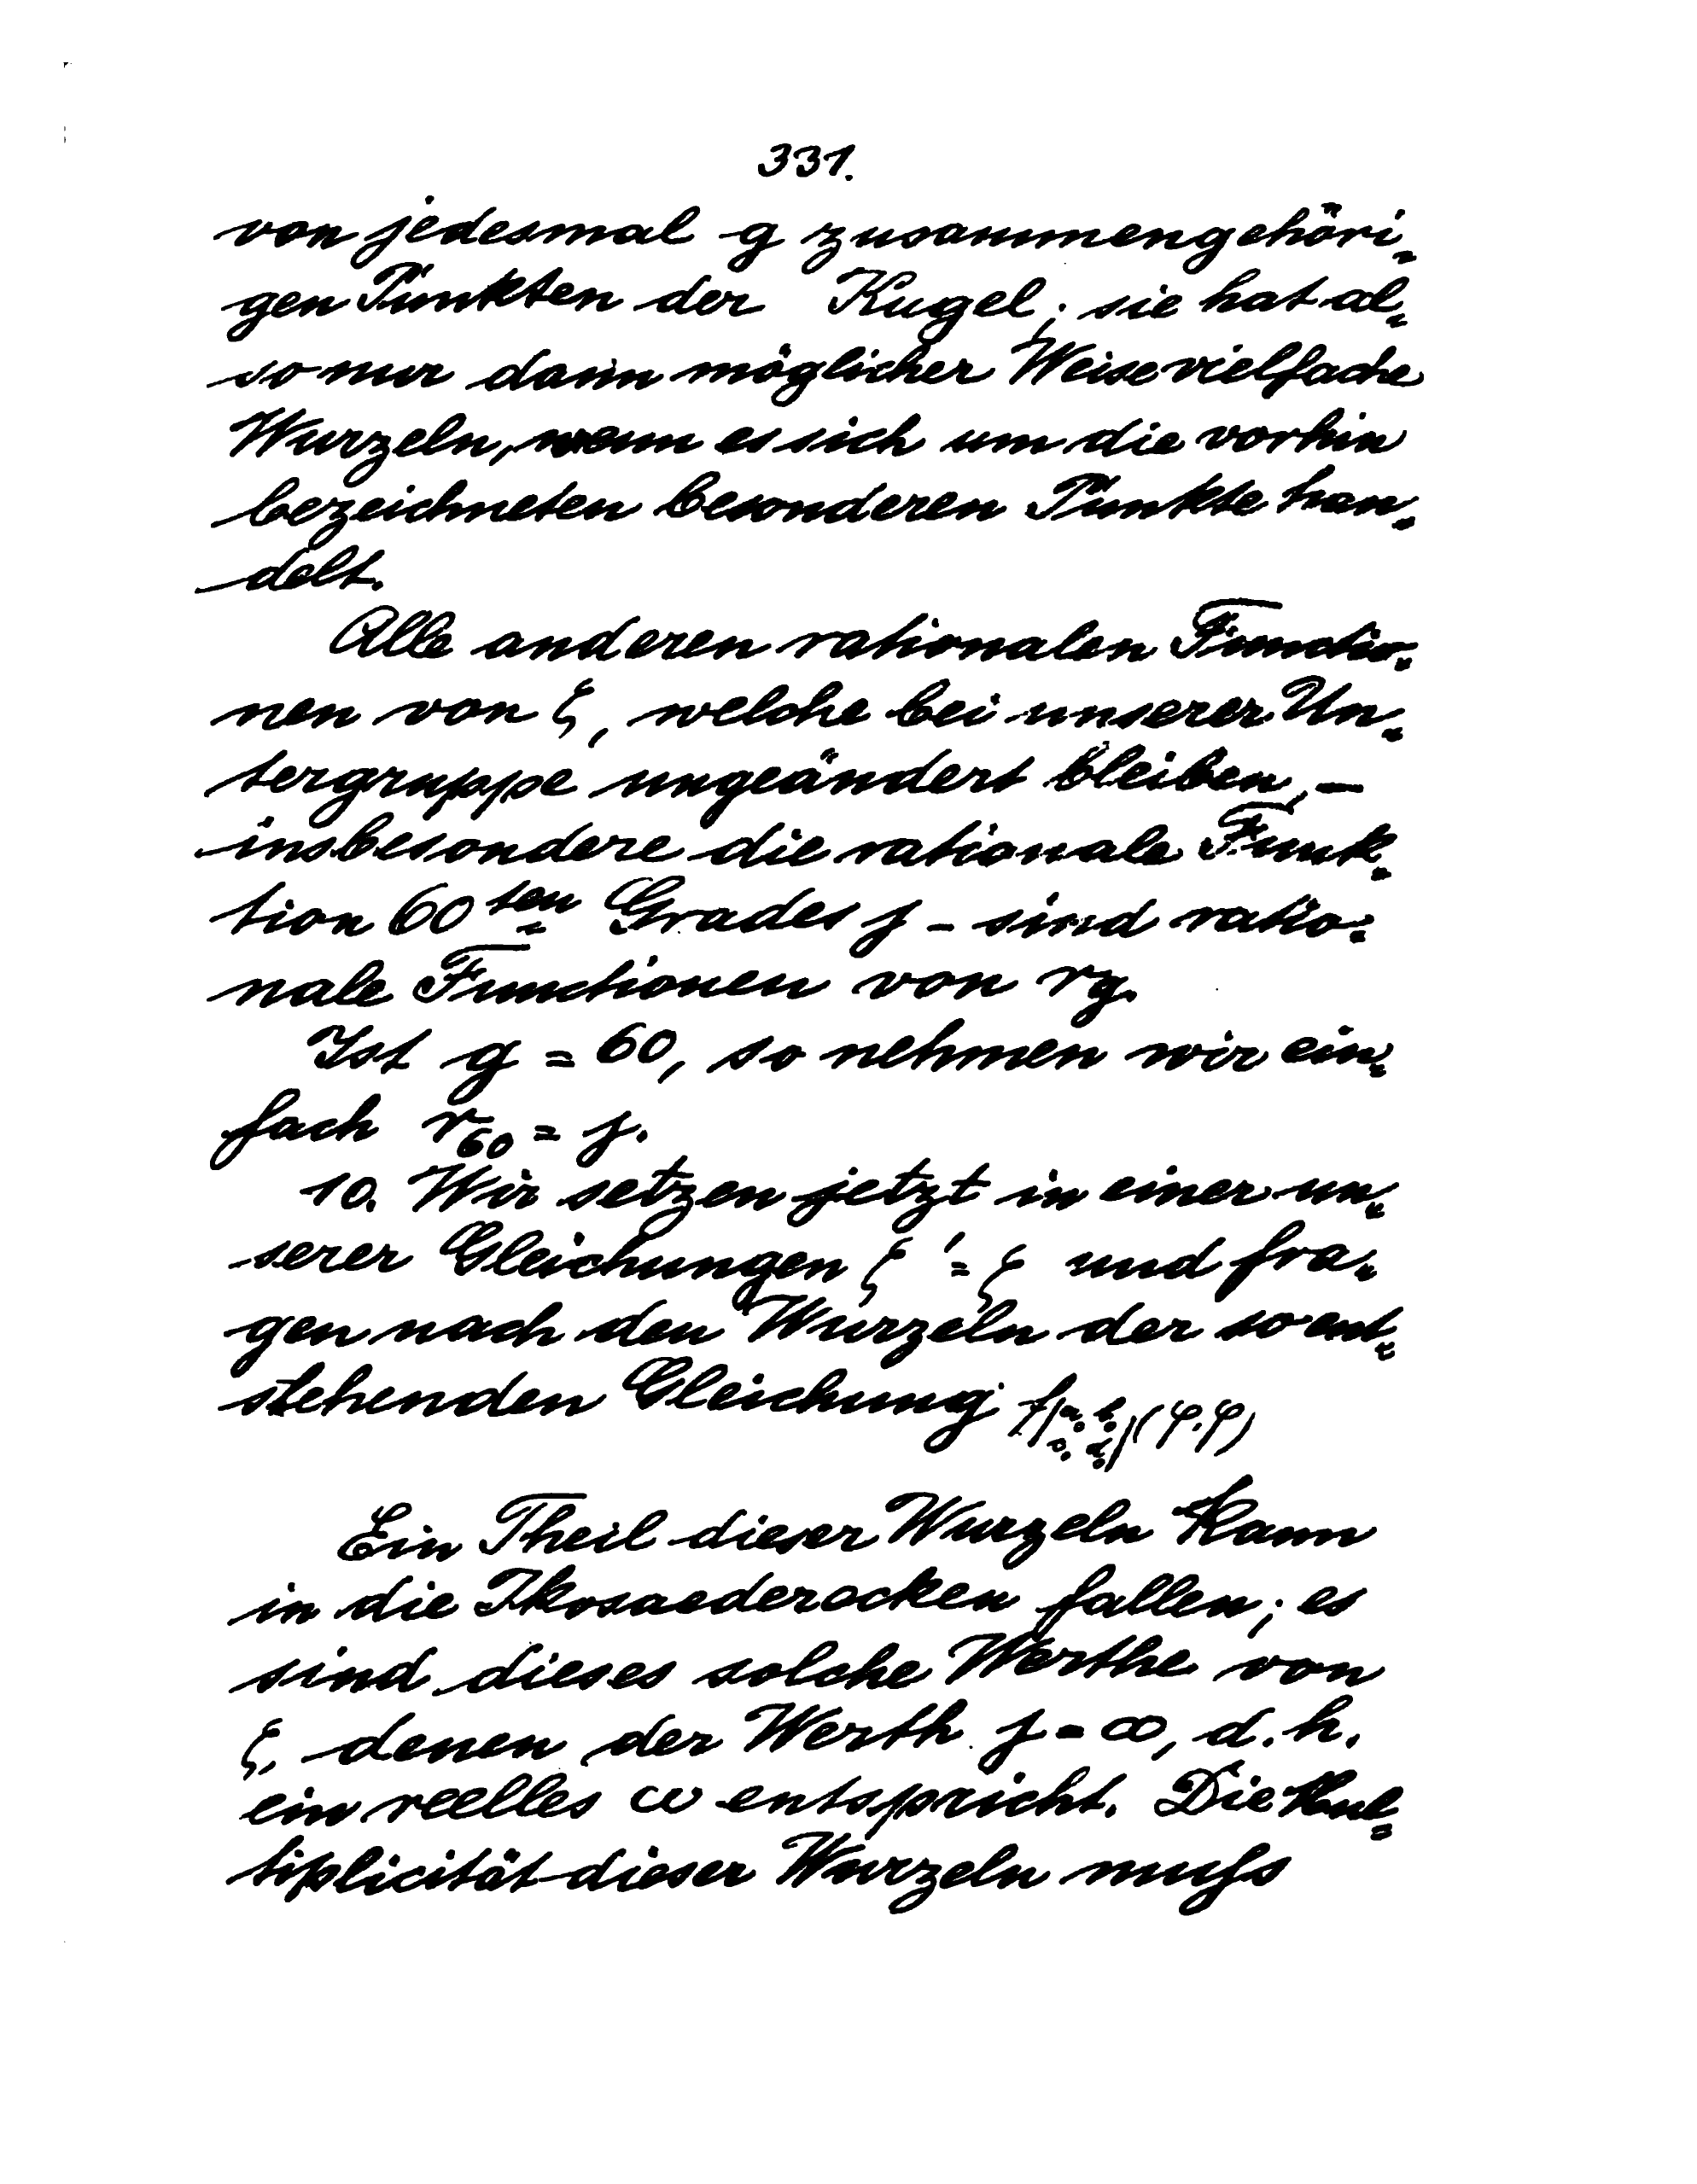 331.
von jedesmal g zusammengehöri-
gen Punkten der Kugel; sie hat al-
so nur dann möglicher Weise vielfache
Wurzeln, wenn es sich um die vorhin
bezeichneten besonderen Punkte han-
delt.
Alle anderen rationalen Functio-
nen von ζ, welche bei unserer Un-
tergruppe ungeändert bleiben, –
insbesondere die rationale Funk-
tion 60ten Grades j – sind ratio-
nale Functionen von rg.
Ist g = 60, so nehmen wir ein-
fach r60 = j.
10. Wir setzen jetzt in einer un-
serer Gleichungen ζ' = ζ und fra-
gen nach den Wurzeln der so ent-
stehenden Gleichung
Ein Theil dieser Wurzeln kann
in die Ikosaederecken fallen; es
sind dieses solche Werthe von
ζ, denen der Werth j = ∞, d. h.
ein reelles ω entspricht. Die Mul-
tiplicität dieser Wurzeln muß